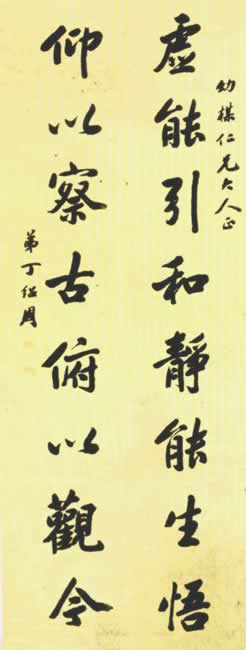 幼楳仁兄大人正
虛能引和靜能生悟
仰以察古俯以觀今
弟丁紹周